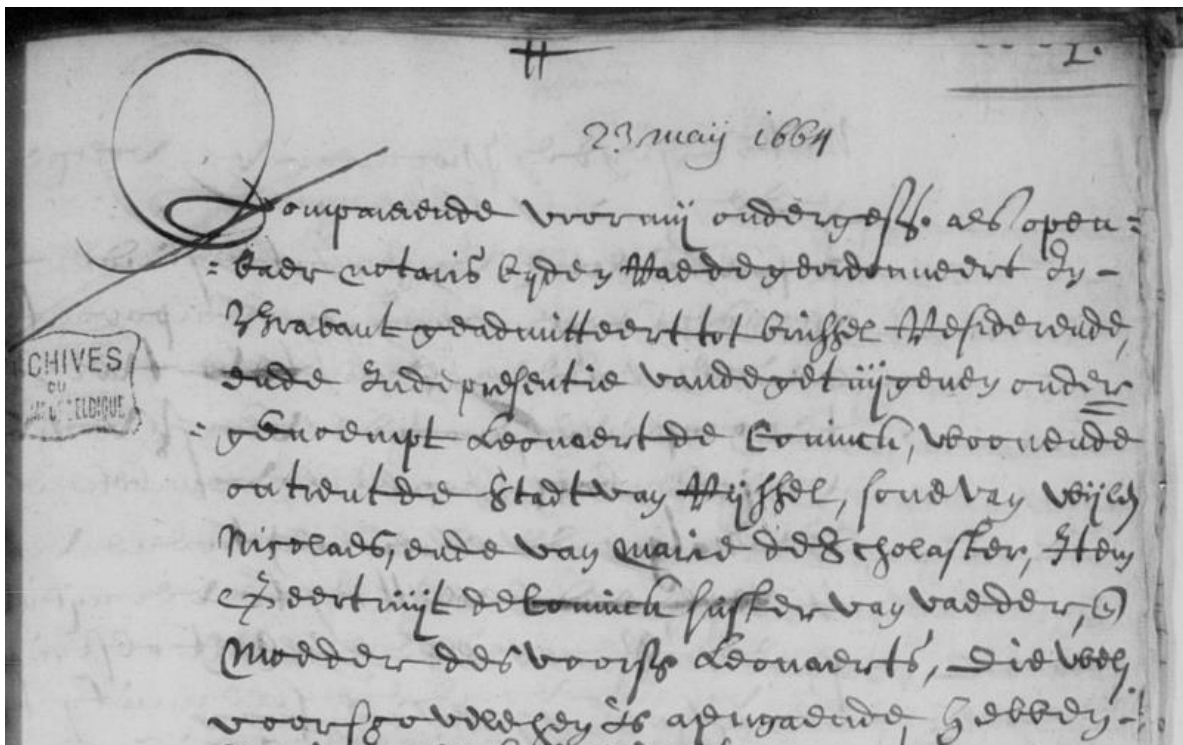 1.
23 maij 1664
Comparerende voor mij onderges. als open=
=baer notaris bijden Raede geordonneert In
Brabant geadmitteert tot brussel Residerende,
ende Inde presentie vande getuijgenen onder
=genoempt Leonaert de Coninck, woonende
ontrent de stadt van Rijssel, sone van wijlen
Nicolaes, ende van marie de Scholaster, Item
Geertruijt de Coninck suster van vaedder, en
Moedder des voors. Leonaerts, die welc
voor soo vele hen is aengaende, hebben
ARCHIVES
DU
BELGIQUE